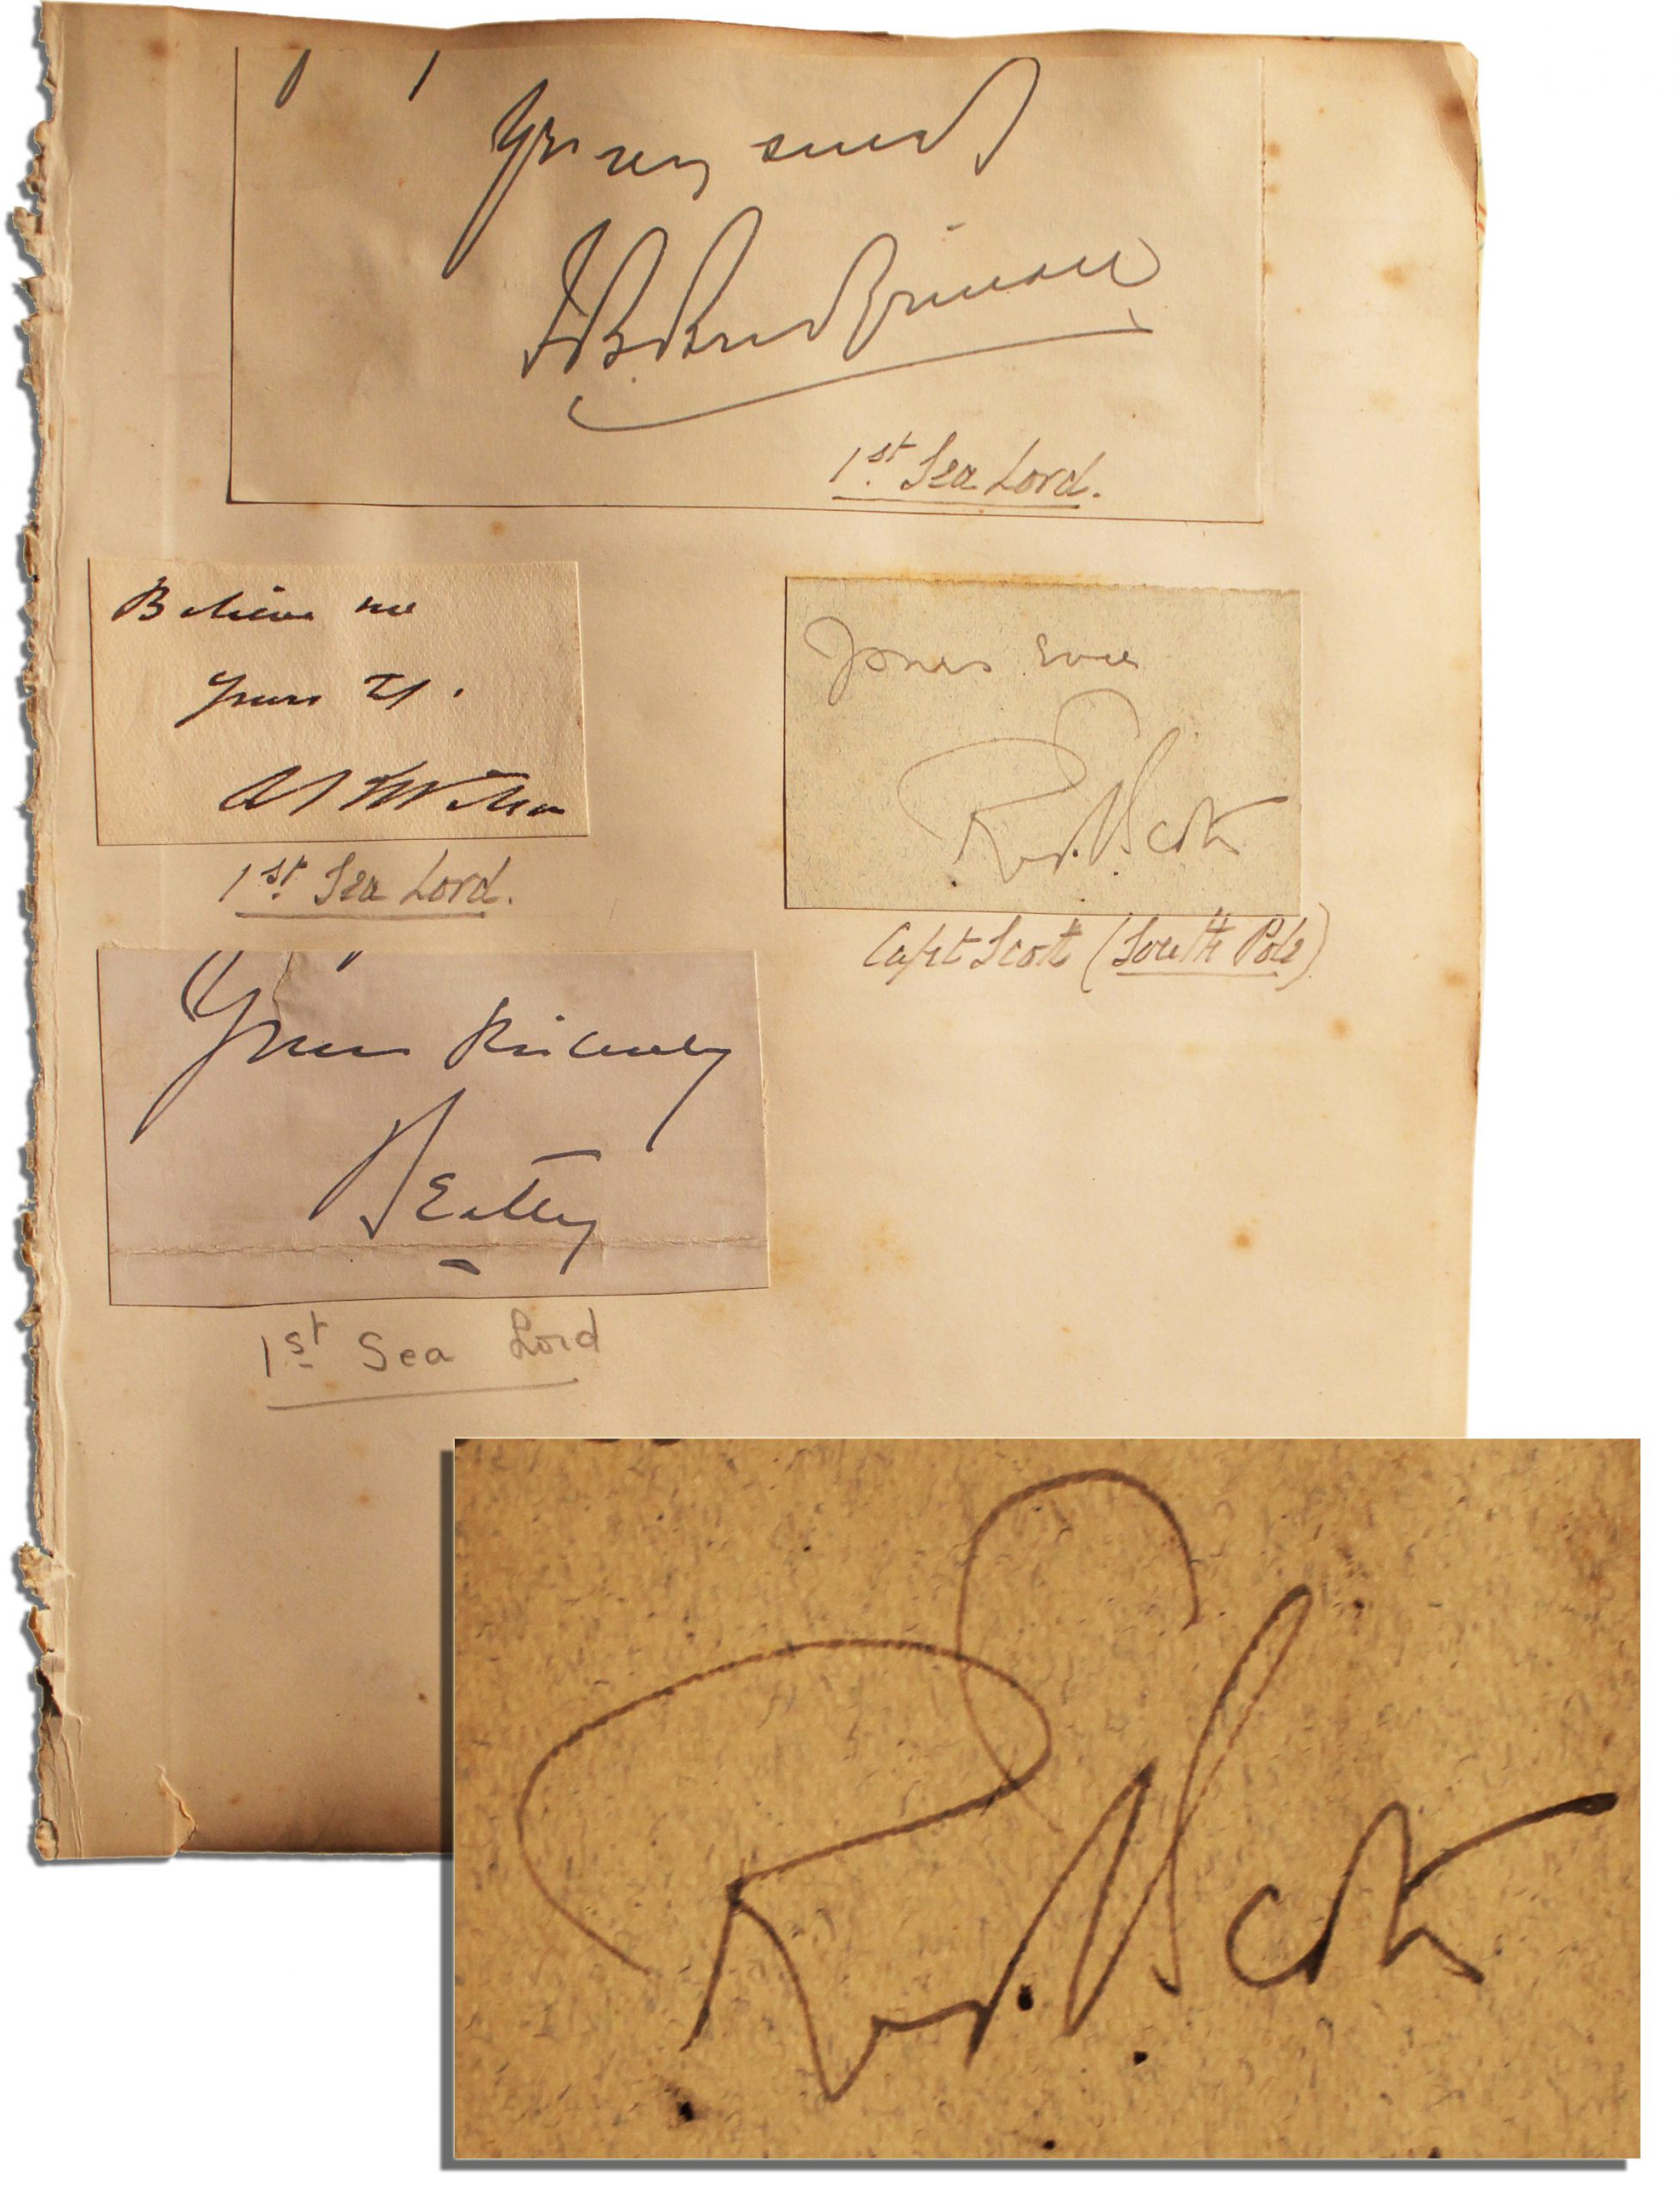 Yours very sincerely
1st Sea Lord.
Believe me
Yours
1st Sea Lord.
Yours Ever
R. Scott
Capt Scott (South Pole)
Yours Sincerely
Beatty
1st Sea Lord
R. Scott